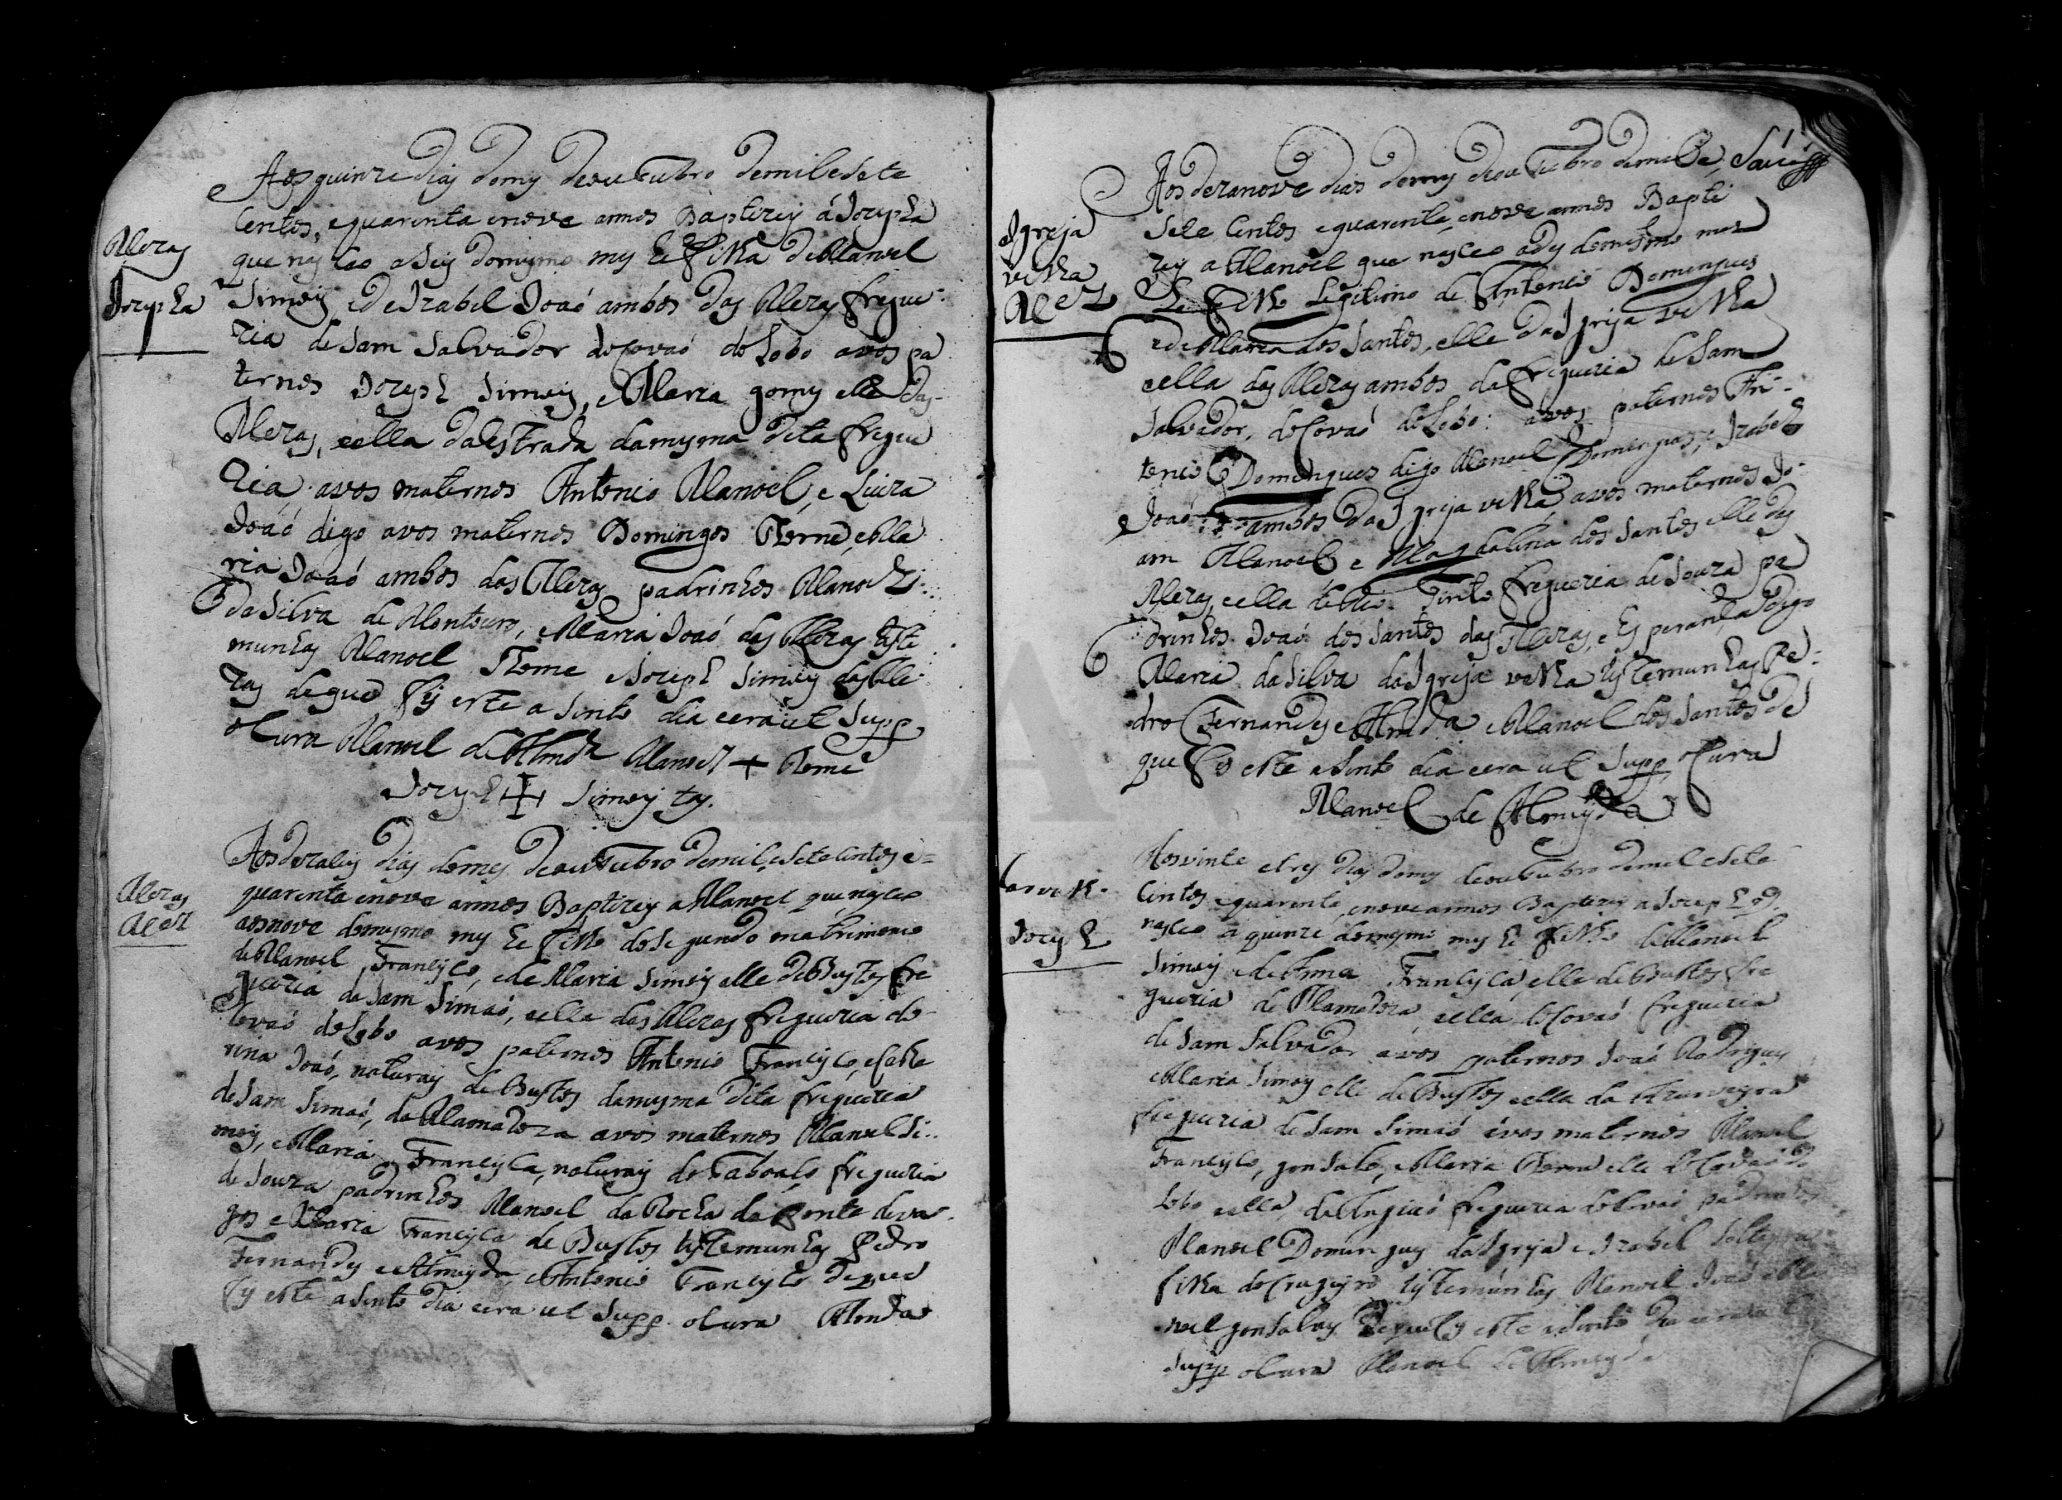 Aos quinze dias do mes de outubro de mil e sete
Centos, e quarenta e nove annos Baptizey á Josepha
que nasceo a seis do mesmo mes he filha de Manoel
Simois e de Izabel Joaó ambos das Meras fregue-
zia de Sam Salvador do Covaó do Lobo avos pa
ternos Joseph Simois, e Maria gomes elle das
Meras, e ella da estrada da mesma dita fregue
zia, avos maternos Antonio Manoel, e Luiza
Joaó digo avos maternos Domingos Thome, e Ma
ria Joaó ambos das Meras padrinhos Manoel
da Silva de Montouro, e Maria Joaó das Meras teste
munhas Manoel Thome e Joseph Simois das Me
ras de que fis este asento dia e era ut supp
o Cura Manoel de Almda Manoel + Thome
Joseph + Simois
Meras
Josepha
Aos dezaseis dias do mes de outubro de mil, e sete centos e
quarenta e nove annos Baptizey a Manoel que nasceo
aos nove do mesmo mes he filho do segundo matrimonio
de Manoel Francisco, e de Maria Simois elle de Bustos fre
guezia de Sam Simaó, e ella das Meras freguezia do
Covaó do Lobo avos paternos Antonio Francisco, e Cathe
rina Joaó, naturais de Bustos da mesma dita freguezia
de Sam Simaó, da Mamaroza avos maternos Manoel Si-
mois, e Maria Francisca, naturais do Taboaço freguezia
de Souza padrinhos Manoel da Rocha da Ponte de va-
gos e Maria Francisca de Bustos testemunhas Pedro
Fernandes e Almeyda e Antonio Francisco de que
fis este asento dia e era ut supp. o Cura Almda
Meras
Mel
Aos dezanove dias do mes de outubro de mil e
sete Centos e quarenta, e nove annos Bapti
zey a Manoel que nasceo a des do mesmo mes
he filho legitimo de Antonio Domingues
e de Maria dos Santos, elle da Igreja velha
e ella das Meras ambos da freguezia de Sam
Salvador, do Covaó do Lobo: avos paternos
Domingues digo Manoel Domingues, e Izabel
Joaó ambos da Igreja velha, avos maternos Jo-
am Manoel e Magdalina dos Santos elle das
Meras, e ella de freguezia de Souza pa
drinhos Joaó dos Santos das Meras, e Esperança digo
Maria da Silva da Igreja velha testemunhas Pe-
dro Fernandes e Almda e Manoel dos Santos de
que fis este asento dia e era ut supp o Cura
Manoel de Almeyda
Igreja
velha
Mel
Aos vinte e tres dias do mes de outubro de mil e sete
Centos e quarenta, e nove annos Baptizey a Joseph q
nasceo a quinze do mesmo mes he filho de Manoel
Simois e de Anna Francisca, elle de Bustos fre
guezia de Mamaroza, e ella do Covaó freguezia
de Sam Salvador avos paternos Joaó Rodrigues
e Maria Simois elle de Bustos e ella da
freguezia de Sam Simaó avos maternos Manoel
Francisco, gonsalo, e Maria Thome elle do Covaó do
Lobo e ella, de freguezia do Covaó padrinhos
Manoel Domingues da Igreja e Izabel solteyra
filha do testemunhas Manoel Joaó e Ma
noel gonsalves de que fis este asento dia e era ut
supp o Cura Manoel de Almeyda
Joseph